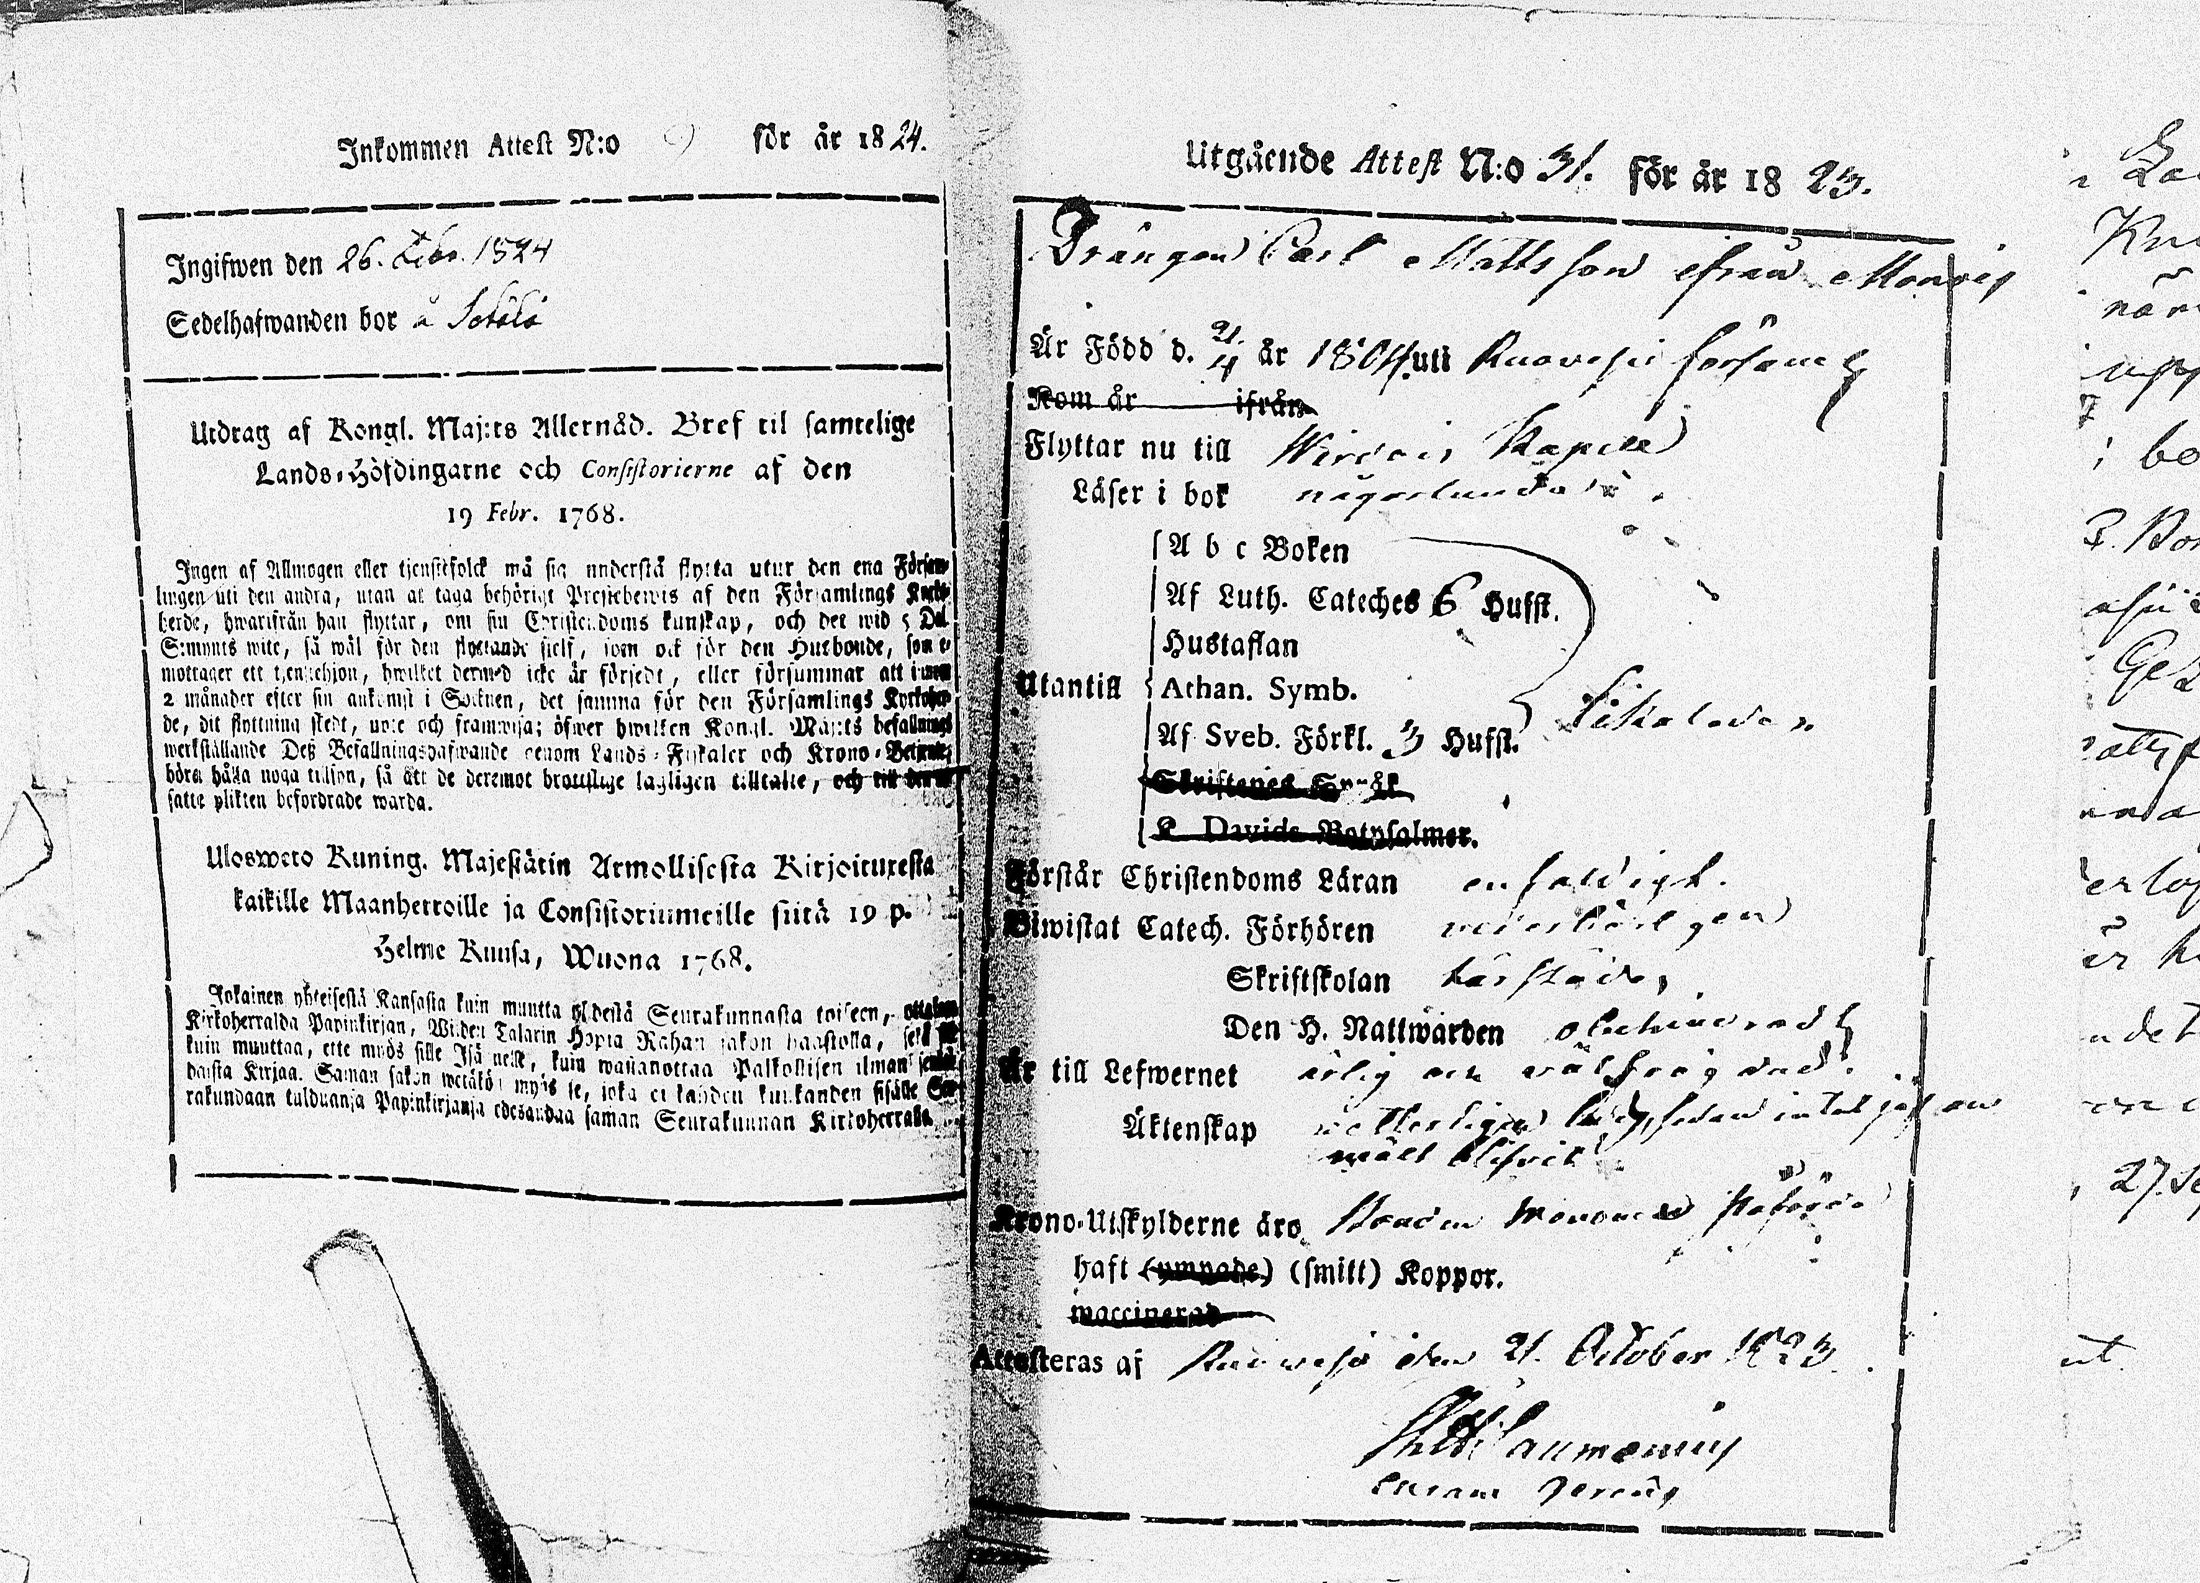 Inkommen Attest N:o 9 för år 1824.
Ingifwen den 26. Febr. 1824
Sedelhafwanden bor å
Utdrag af Kongl. Maj:ts Allernåd. Bref til samtelige
Lands-Höfdingarne och Consistorierne af den
19 Febr. 1768.
Ingen af Allmogen eller tjenstefolck må sig understå flytta utur den ena Försam-
lingen uti den andra, utan at taga behörigt Prestebewis af den Församlings Kyrko-
herde, hwarifrån han flyttar, om sin Christendoms kunskap, och det wid 5 Dal.
S:mynts wite, så wäl för den flyttande sjelf, som ock för den Husbonde, som e-
mottager ett tjenstehjon, hwilket dermed icke är försedt, eller försummar att innom
2 månader efter sin ankomst i Socknen, det samma för den Församlings Kyrkoher-
de, dit flyttning skedt, upte och framwisa; öfwer hwilken Kongl. Maj:ts befallnings
werkställande Deß Befallningshafwande genom Lands-Fiskaler och Krono-Betjente
böra hålla noga tillsyn, så att de deremot brottslige lagligen tilltalte, och till den ut
satte plikten befordrade warda.
Ulosweto Kuning. Majestätin Armollisesta Kirjoituxesta
kaikille Maanherroille ja Consistoriumeille siitä 19 p.
Helme Kuusa, Wuona 1768.
Jokainen yhteisestä Kansasta kuin muutta yhdestä Seurakunnasta toiseen, ottakan
Kirkoherralda Papinkirjan, Wijden Talarin Hopia Rahan sakon haastolla, sekä sille
kuin muuttaa, ette myös sille Isännelle, kuin wastanottaa Palkollisen ilman sen-
daista Kirjaa. Saman sakon wetäkön myös se, joka ei kahden kuukanden sisälle Seu-
rakundaan tulduansa Papinkirjansa edesandaa saman Seurakunnan Kirkoherralle.
Utgående Attest N:o 31. för år 1823.
Drängen Carl Mattsson ifrån
Är Född d. 21/4 år 1804. uti Ruovesi församl
Kom år ifrån
Flyttar nu till Wirdois Kapell
Läser i bok någorlunda
A b c Boken
Af Luth. Cateches 6 Hufst.
Hustaflan
Utantill Athan. Symb.
Af Sveb. Förkl. 3 Hufst.
Likaledes
Skriftenes Språk
K. Davids Botpsalmer.
Förstår Christendoms Läran enfaldigt.
Biwistat Catech. Förhören
Skriftskolan härstädes
Den H. Nattwarden obehindradt
Är till Lefwernet ärlig och välfrägdad.
Äktenskap wetterligen ledig, sedan intet jäf an
mält blifvit
Krono-Utskylderne äro
haft (ympade) (smitt) Koppor.
waccinerad
Attesteras af Ruovesi den 21. October 1823.